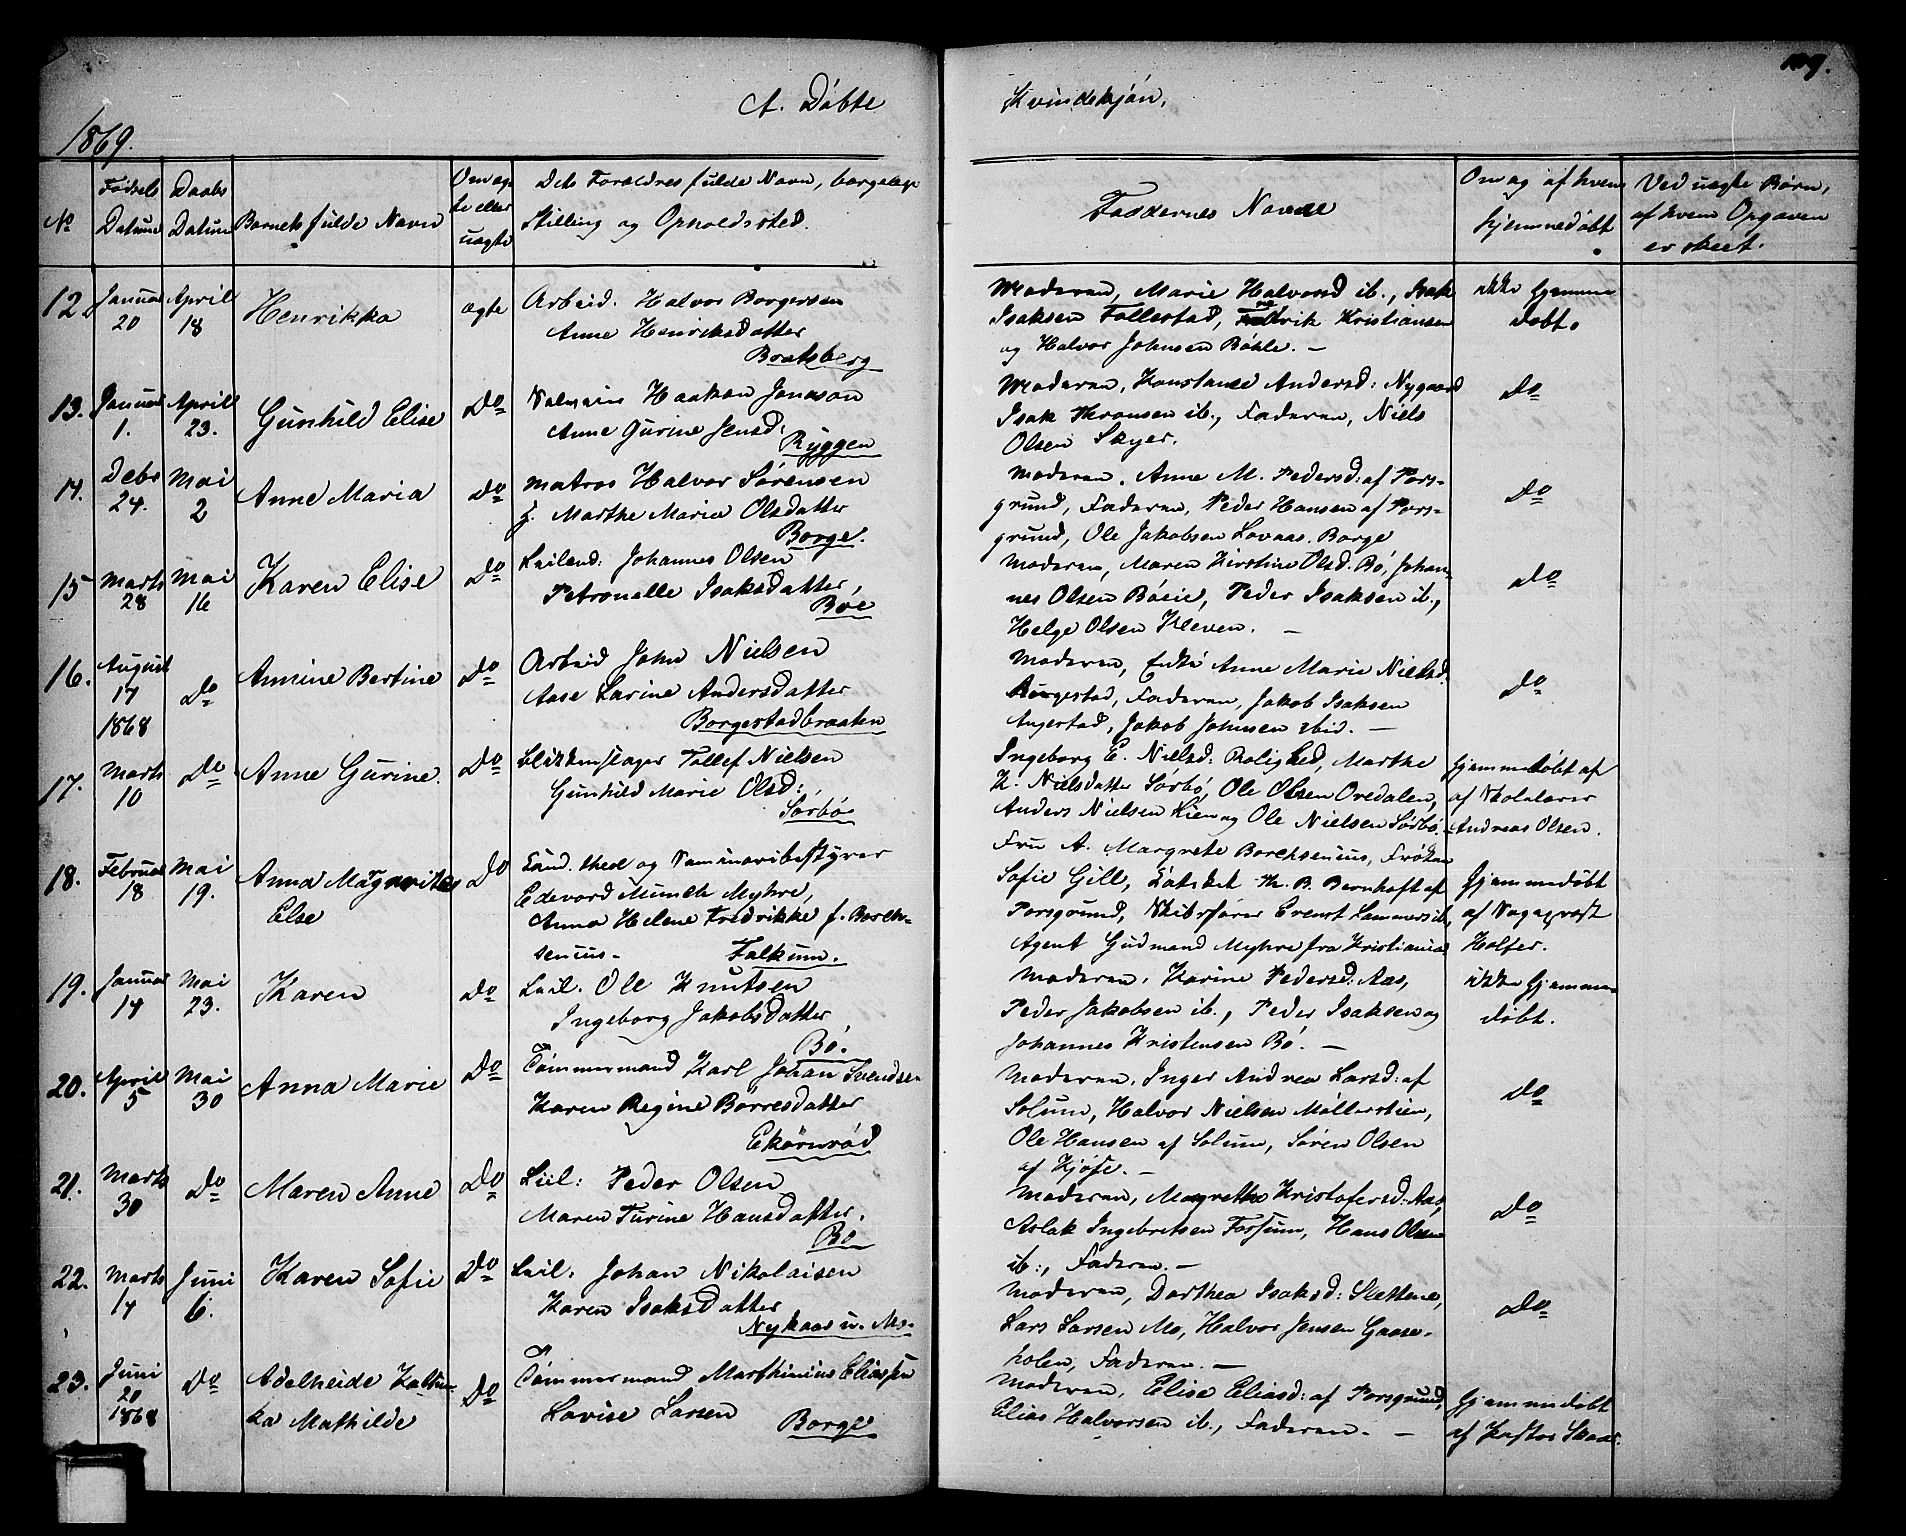 1869.
A. Döbte
Kvindekjön.
109.
No
Födsels Datum
Daabs Datum
Barnets fulde Navn
Om ægte eller uægte
Dets Forældres fulde Navn, borgelige
Stilling og Opholdssted.
Faddernes Navne
Om og af hvem
hjemmedöbt
Ved uægte Börn,
af hvem Opgaven
er skeet.
12. Januar 20 April 18 Henrikka ægte
Arbeid. Halvor Borgersen
Anne Henriksdatter
Bratsberg
Moderen, Marie Halvorsd ib., Isak
Isaksen Follestad, Fredrik Kristiansen
og Halvor Johnsen Böhle. —
ikke hjemme
döbt.
13. Januar 1. April 23. Gunhild Elise Do
Haakon Jonason
Anne Gurine Jensd:
Ryggen
Moderen, Konstance Andersd: Nygaard
Isak Hansen ib., Faderen, Niels
Olsen Skyer.
Do
14. Debr 24. Mai 2 Anne Maria Do
Matros Halvor Sörensen
g. Marthe Maria Olsdatter
Borge.
Moderen, Anne M. Pedersd: af Pors-
grund, Faderen, Peder Hansen af Pors-
grund, Ole Jakobsen Lovaas. Borge
Do
15 Marts 28 Mai 16 Karen Elise Do
Leilend: Johannes Olsen
Petronelle Isaksdatter,
Böe
Moderen, Maren Kirstine Olsd. Bö, Johan-
nes Olsen Böeie, Peder Isaksen ib.,
Helge Olsen Kleven. —
Do
16. August 17 1868 Do Annine Bertine Do
Arbeid John Nielsen
Aase Larine Andersdatter
Borgestadbraaten
Moderen, Enke Anne Marie Nielsd:
Borgestad, Faderen, Jakob Isaksen
Angerstad, Jakob Johnsen ibid. —
Do
17. Marts 10 Do Anne Gurine. Do
Blikkenslager Tollef Nielsen
Gunhild Marie Olsd:
Sörbö
Ingeborg E. Nielsd: Rolighed, Marthe
K. Nielsdatter Sörbö, Ole Olsen Ovedalen,
Anders Nielsen Lien og Ole Nielsen Sörbö.
Hjemmedöbt af
af Skolelærer
Andreas Olsen.
18. Februar 18 Mai 19. Anna Magrethe
Else Do
Cand. theol og Seminaribestyrer
Edevard Munch Myhre,
Anna Helene Fredrikke f. Borch-
senius- Falkum.
Fru A. Margrete Borchsenius, Fröken
Sofie Gill, Th. B. Bernhoft af
Porsgrund, Skibsförer Evert Lammers ib,
Agent Gudmand Myhre fra Kristiania
Hjemmedöbt
af Sogneprest
Holfer.
19. Januar 14 Mai 23. Karen Do
Leil. Ole Knutsen
Ingeborg Jakobsdatter
Bö.
Moderen, Karine Pedersd: Aas,
Peder Jakobsen ib., Peder Isaksen og
Johannes Kristensen Bö. —
ikke hjemme-
döbt.
20. April 5 Mai 30 Anna Marie Do
Tömmermand Karl Johan Svendse-
Karen Regine Börresdatter
Ekörnröd
Moderen, Inger Andrea Larsd: af
Solum, Halvor Nielsen Möllerstien,
Ole Hansen af Solum, Sören Olsen
af Kjöse. —
Do
21. Marts 30 Do Maren Anne Do
Leil: Peder Olsen
Maren Turine Hansdatter,
Bö
Moderen, Margrethe Kristofersd: Aas,
Aslak Ingebretsen Fossum, Hans Olsen
ib., Faderen. —
Do
22. Marts 14 Juni 6. Karen Sofie Do
Leil. Johan Nikolaisen
Karen Isaksdatter
Nykaas u. Mo-
Moderen, Dorthea Isaksd: Slettene,
Lars Larsen Mo, Halvor Jensen Gaase-
holen, Faderen. —
Do
23. Juni 20 1868 Do Adelheide
ka Mathilde Do
Tömmermand Marthinius Eliassen
Lovise Larsen
Borge
Moderen, Elise Eliasd: af Porsgrund,
Elias Halvorsen ib., Faderen. —
Hjemmedöbt
af Skaar.